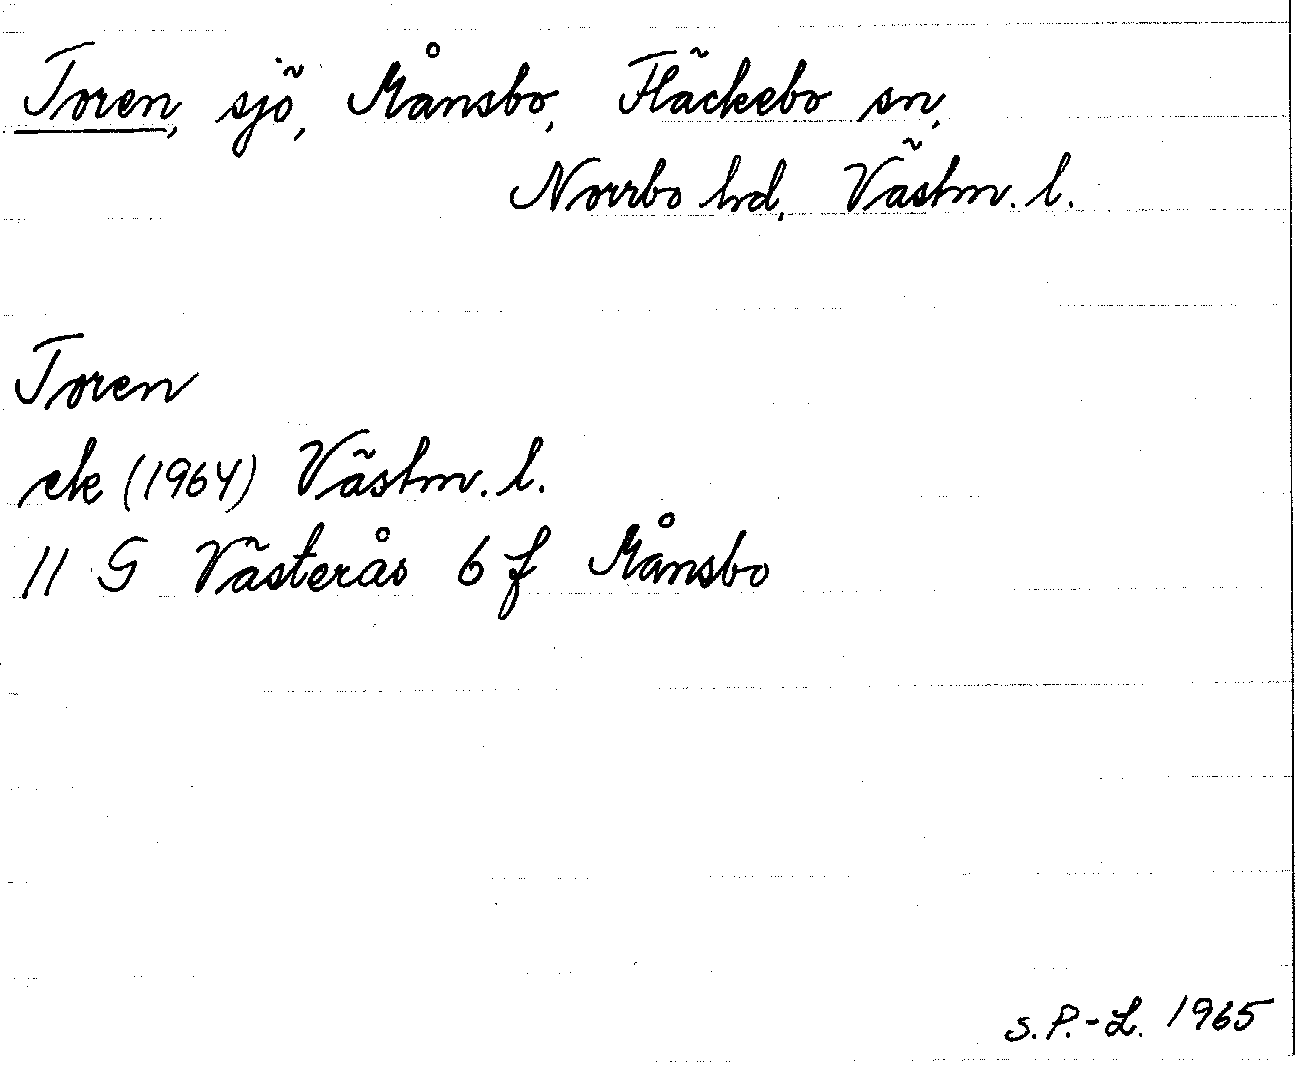 Toren, sjö, Månsbo, Fläckebo sn,
Norrbo hd, Västm. l.
Toren
ek (1964) Västm. l.
11 G Västerås 6 f Månsbo
S.P.-L. 1965